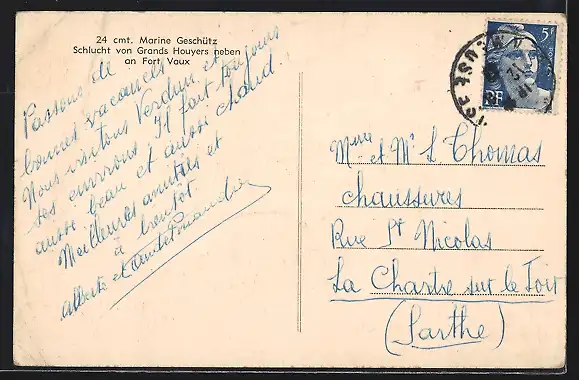 24 cmt. Marine Geschütz
Schlucht von Grands Houyers neben
an Fort Vaux
Passons de
bonnes vacances
Nous visitons Verdun et
ses environs. Il fait toujours
aussi beau et aussi chaud.
Meilleures amitiés et
à bientôt.
Alberte et
5F
RF
MEUSE
Mme et Mr L Thomas
Chaussures
Rue St Nicolas
La Chartre sur le Loir
(Sarthe)